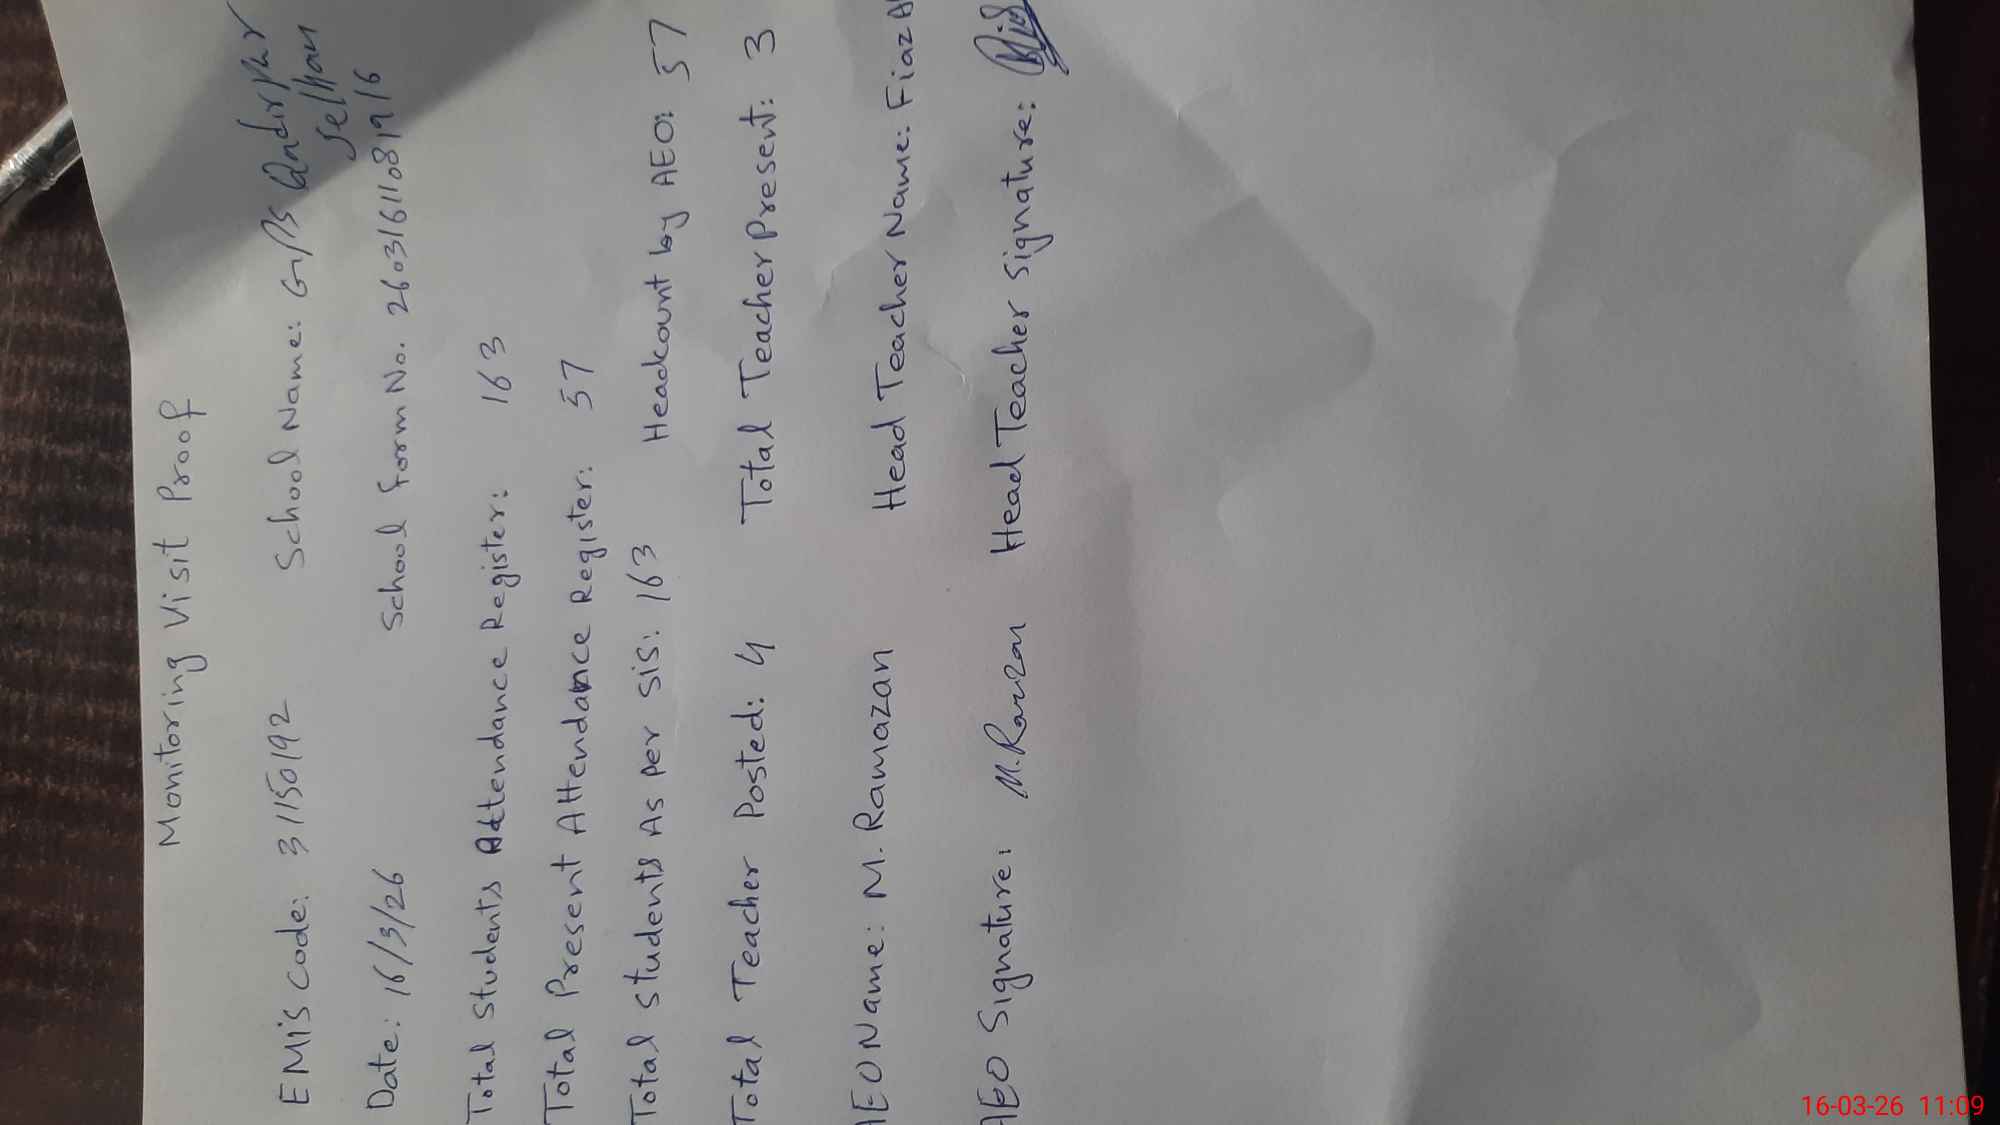 Monitoring Visit Proof
EMIS Code: 31150192 School Name: G/PS Qadirpur
Date: 16/3/26 School Form No. 26031611081916
Total Students Attendance Register: 163
Total Present Attendance Register: 57
Total Students As per SIS: 163 Headcount by AEO: 57
Total Teacher Posted: 4 Total Teacher Present: 3
AEO Name: M. Ramazan Head Teacher Name: Fiaz A
AEO Signature: M. Ramzan Head Teacher Signature:
16-03-26 11:09